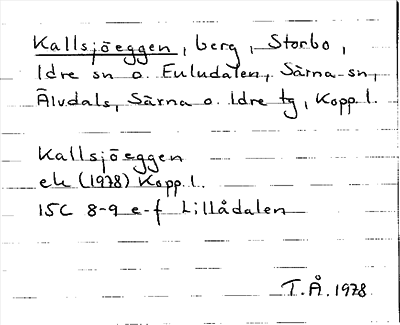 Kallsjöeggen, berg, Storbo,
Idre sn o. Euludalen, Särna sn,
Älvdals, Särna o. Idre tg, Kopp. l.
Kallsjöeggen
ek (1978) Kopp. l.
15C 8-9 e-f Lillådalen
T.Å. 1978